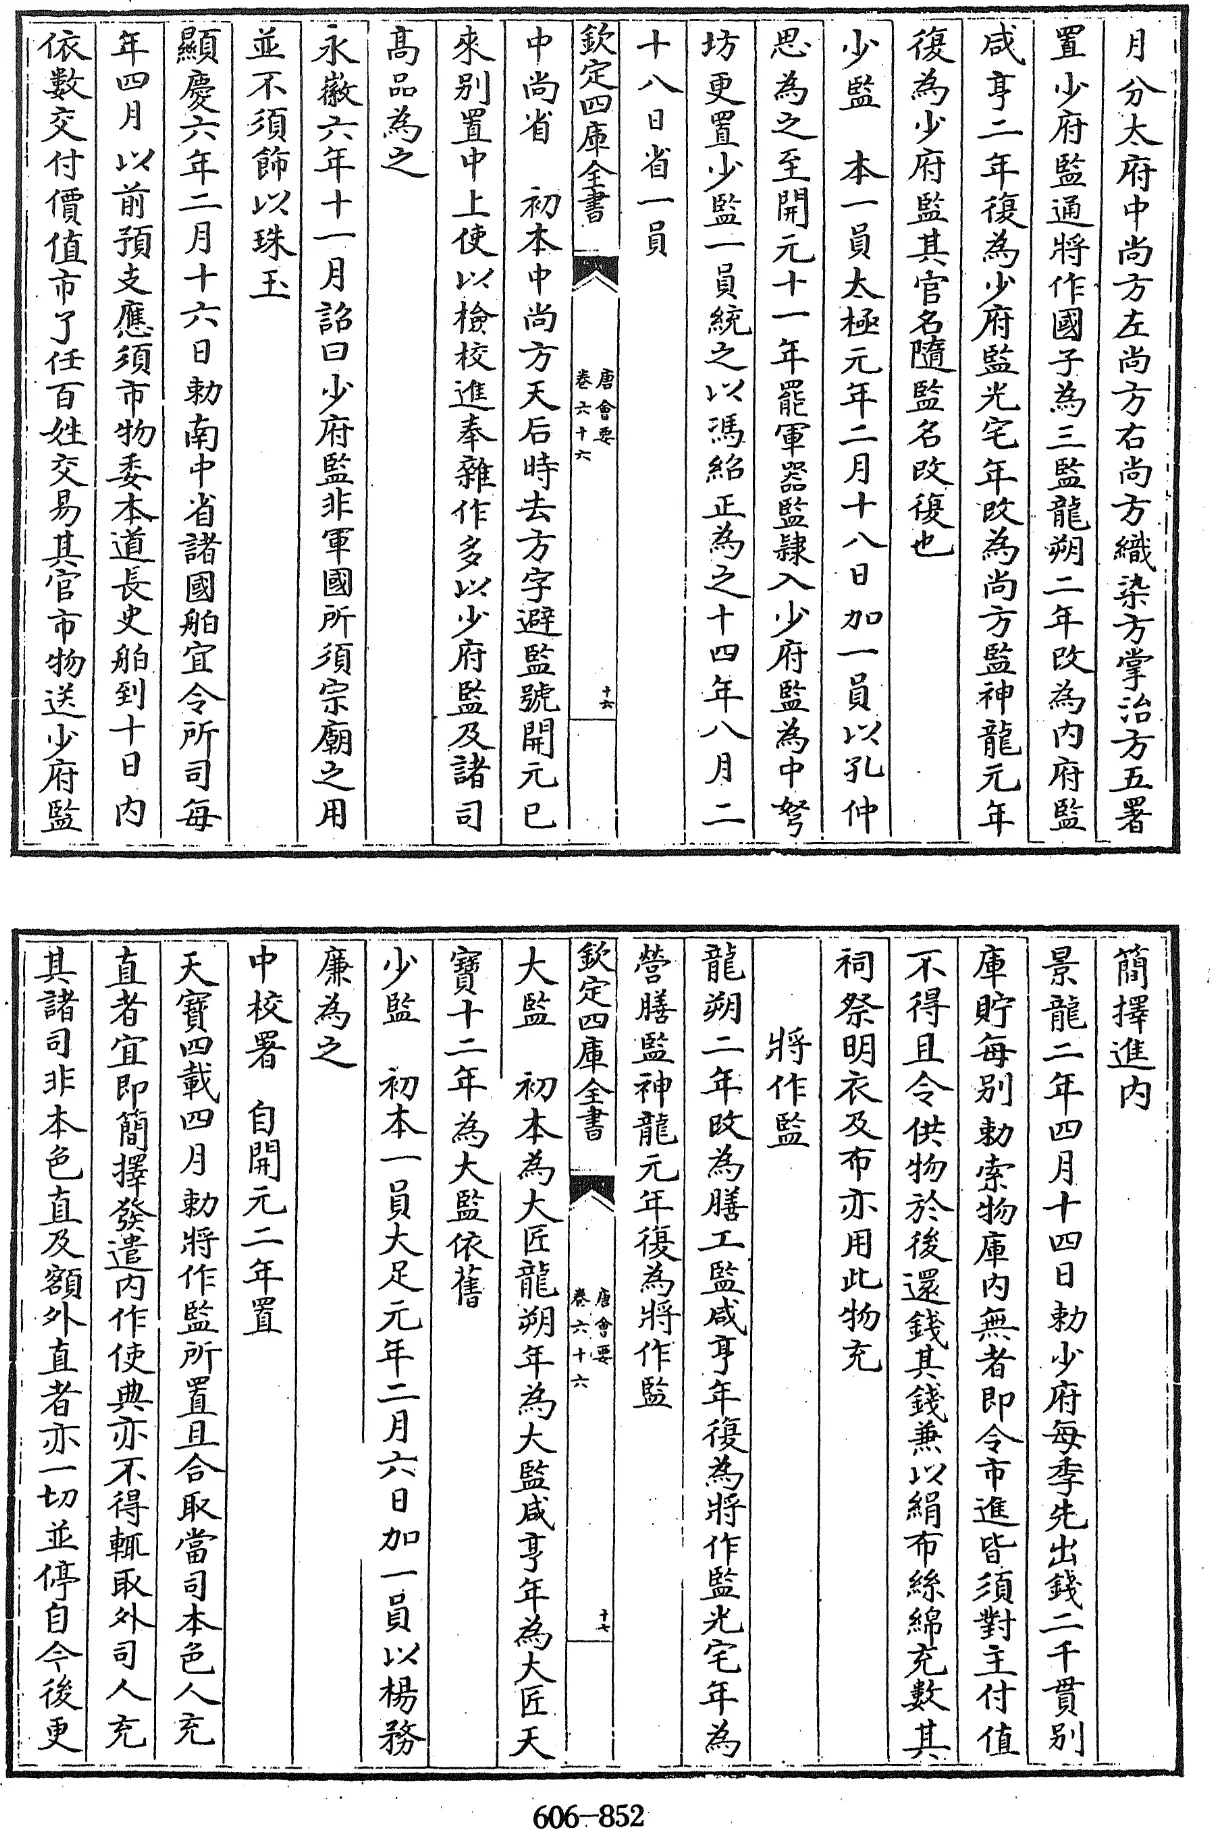 月分太府中尚方左尚方右尚方織染方掌治方五署
置少府監通將作國子為三監龍朔二年改為内府監
咸亨二年復為少府監光宅年改為尚方監神龍元年
復為少府監其官名隨監名改復也
少監　本一員太極元年二月十八日加一員以孔仲
思為之至開元十一年罷軍器監隸入少府監為中弩
坊更置少監一員統之以馮紹正為之十四年八月二
十八日省一員
欽定四庫全書
唐會要
卷六十六
十六
中尚省　初本中尚方天后時去方字避監號開元已
來别置中上使以檢校進奉雜作多以少府監及諸司
高品為之
永徽六年十一月詔曰少府監非軍國所須宗廟之用
並不須飾以珠玉
顯慶六年二月十六日勅南中省諸國舶宜令所司每
年四月以前預支應須市物委本道長史舶到十日内
依數交付價值市了任百姓交易其官市物送少府監
簡擇進内
景龍二年四月十四日勅少府每季先出錢二千貫别
庫貯每别勅索物庫内無者即令市進皆須對主付值
不得且令供物於後還錢其錢兼以絹布絲綿充數其
祠祭明衣及布亦用此物充
將作監
龍朔二年改為膳工監咸亨年復為將作監光宅年為
營膳監神龍元年復為將作監
欽定四庫全書
唐會要
卷六十六
十七
大監　初本為大匠龍朔年為大監咸亨年為大匠天
寶十二年為大監依舊
少監　初本一員大足元年二月六日加一員以楊務
廉為之
中校署　自開元二年置
天寶四載四月勅將作監所置且合取當司本色人充
直者宜即簡擇發遣内作使典亦不得輒取外司人充
其諸司非本色直及額外直者亦一切並停自今後更
606-852